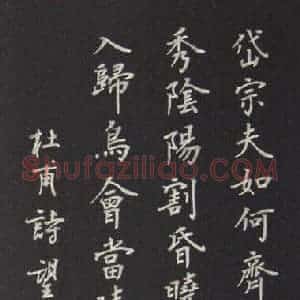 岱宗夫如何齊
秀陰陽割昏曉
入歸鳥會當
杜甫詩望
Shufaziliao.COM